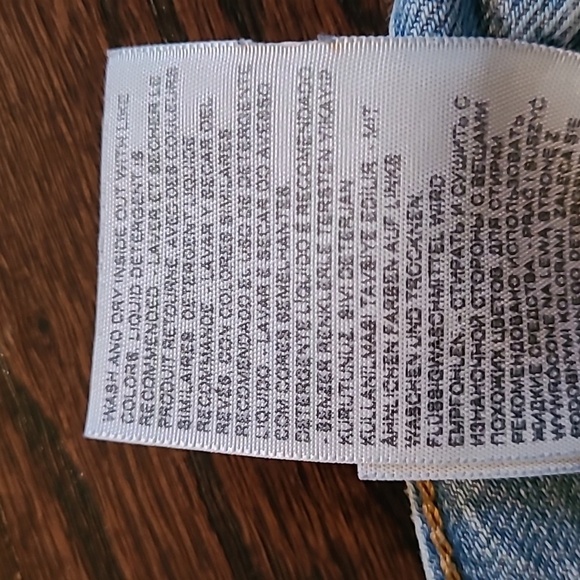 WASH AND DRY INSIDE OUT WITH LIKE
COLORS. LIQUID DETERGENT IS
RECOMMENDED. - LAVER ET SECHER LE
PRODUIT RETOURNE AVEC DES COULEURS
SIMILAIRES. DETERGENT LIQUIDE
RECOMMANDE. - LAVAR Y SECAR DEL
REVES, CON COLORES SIMILARES.
RECOMENDADO EL USO DE DETERGENTE
LIQUIDO. - LAVAR E SECAR DO AVESSO
COM CORES SEMELHANTES.
DETERGENTE LÍQUIDO É RECOMENDADO
- BENZER RENKLERLE TERSTEN YIKAYIP
KURUTUNUZ. SIVI DETERJAN
KULLANILMASI TAVSIYE EDILIR. - MIT
ÄHNLICHEN FARBEN AUF LINKS
WASCHEN UND TROCKNEN.
FLÜSSIGWASCHMITTEL WIRD
EMPFOHLEN. - СТИРАТЬ И СУШИТЬ С
ИЗНАНОЧНОЙ СТОРОНЫ С ВЕЩАМИ
ПОХОЖИХ ЦВЕТОВ. ДЛЯ СТИРКИ
РЕКОМЕНДОВАНО ИСПОЛЬЗОВАТЬ
ЖИДКИЕ СРЕДСТВА. - PRAĆ I SUSZYĆ
WYWRÓCONE NA LEWĄ STRONĘ, Z
PODOBNYMI KOLORAMI. ZALECA SIĘ